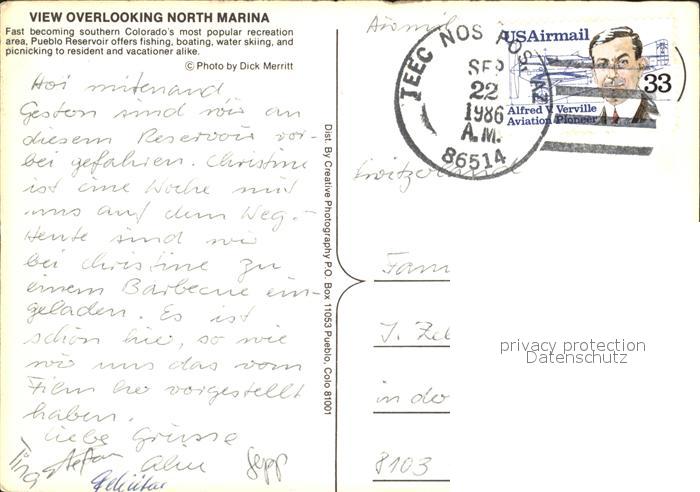 VIEW OVERLOOKING NORTH MARINA
Fast becoming southern Colorado's most popular recreation
area, Pueblo Reservoir offers fishing, boating, water skiing, and
picnicking to resident and vacationer alike.
© Photo by Dick Merritt
Hoi mitenand
Gestern sind wir an
diesem Reservoir vor-
bei gefahren. Christine
ist eine Woche mit
uns auf dem Weg.-
Heute sind wir
bei Christine zu
einem Barbecue ein-
geladen. Es ist
schön hier, so wie
wir uns das vom
Film her vorgestellt
haben.
Liebe Grüsse
Tina Stefan Sepp
Dist. By Creative Photography P.O. Box 11053 Pueblo, Colo 81001
Airmail
TEEC NOS POS, AZ
SEP
22
1986
A.M.
86514
USAirmail
33
Alfred V. Verville
Aviation Pioneer
Switzerland
Fam
J. Zel
in de
8103
privacy protection
Datenschutz